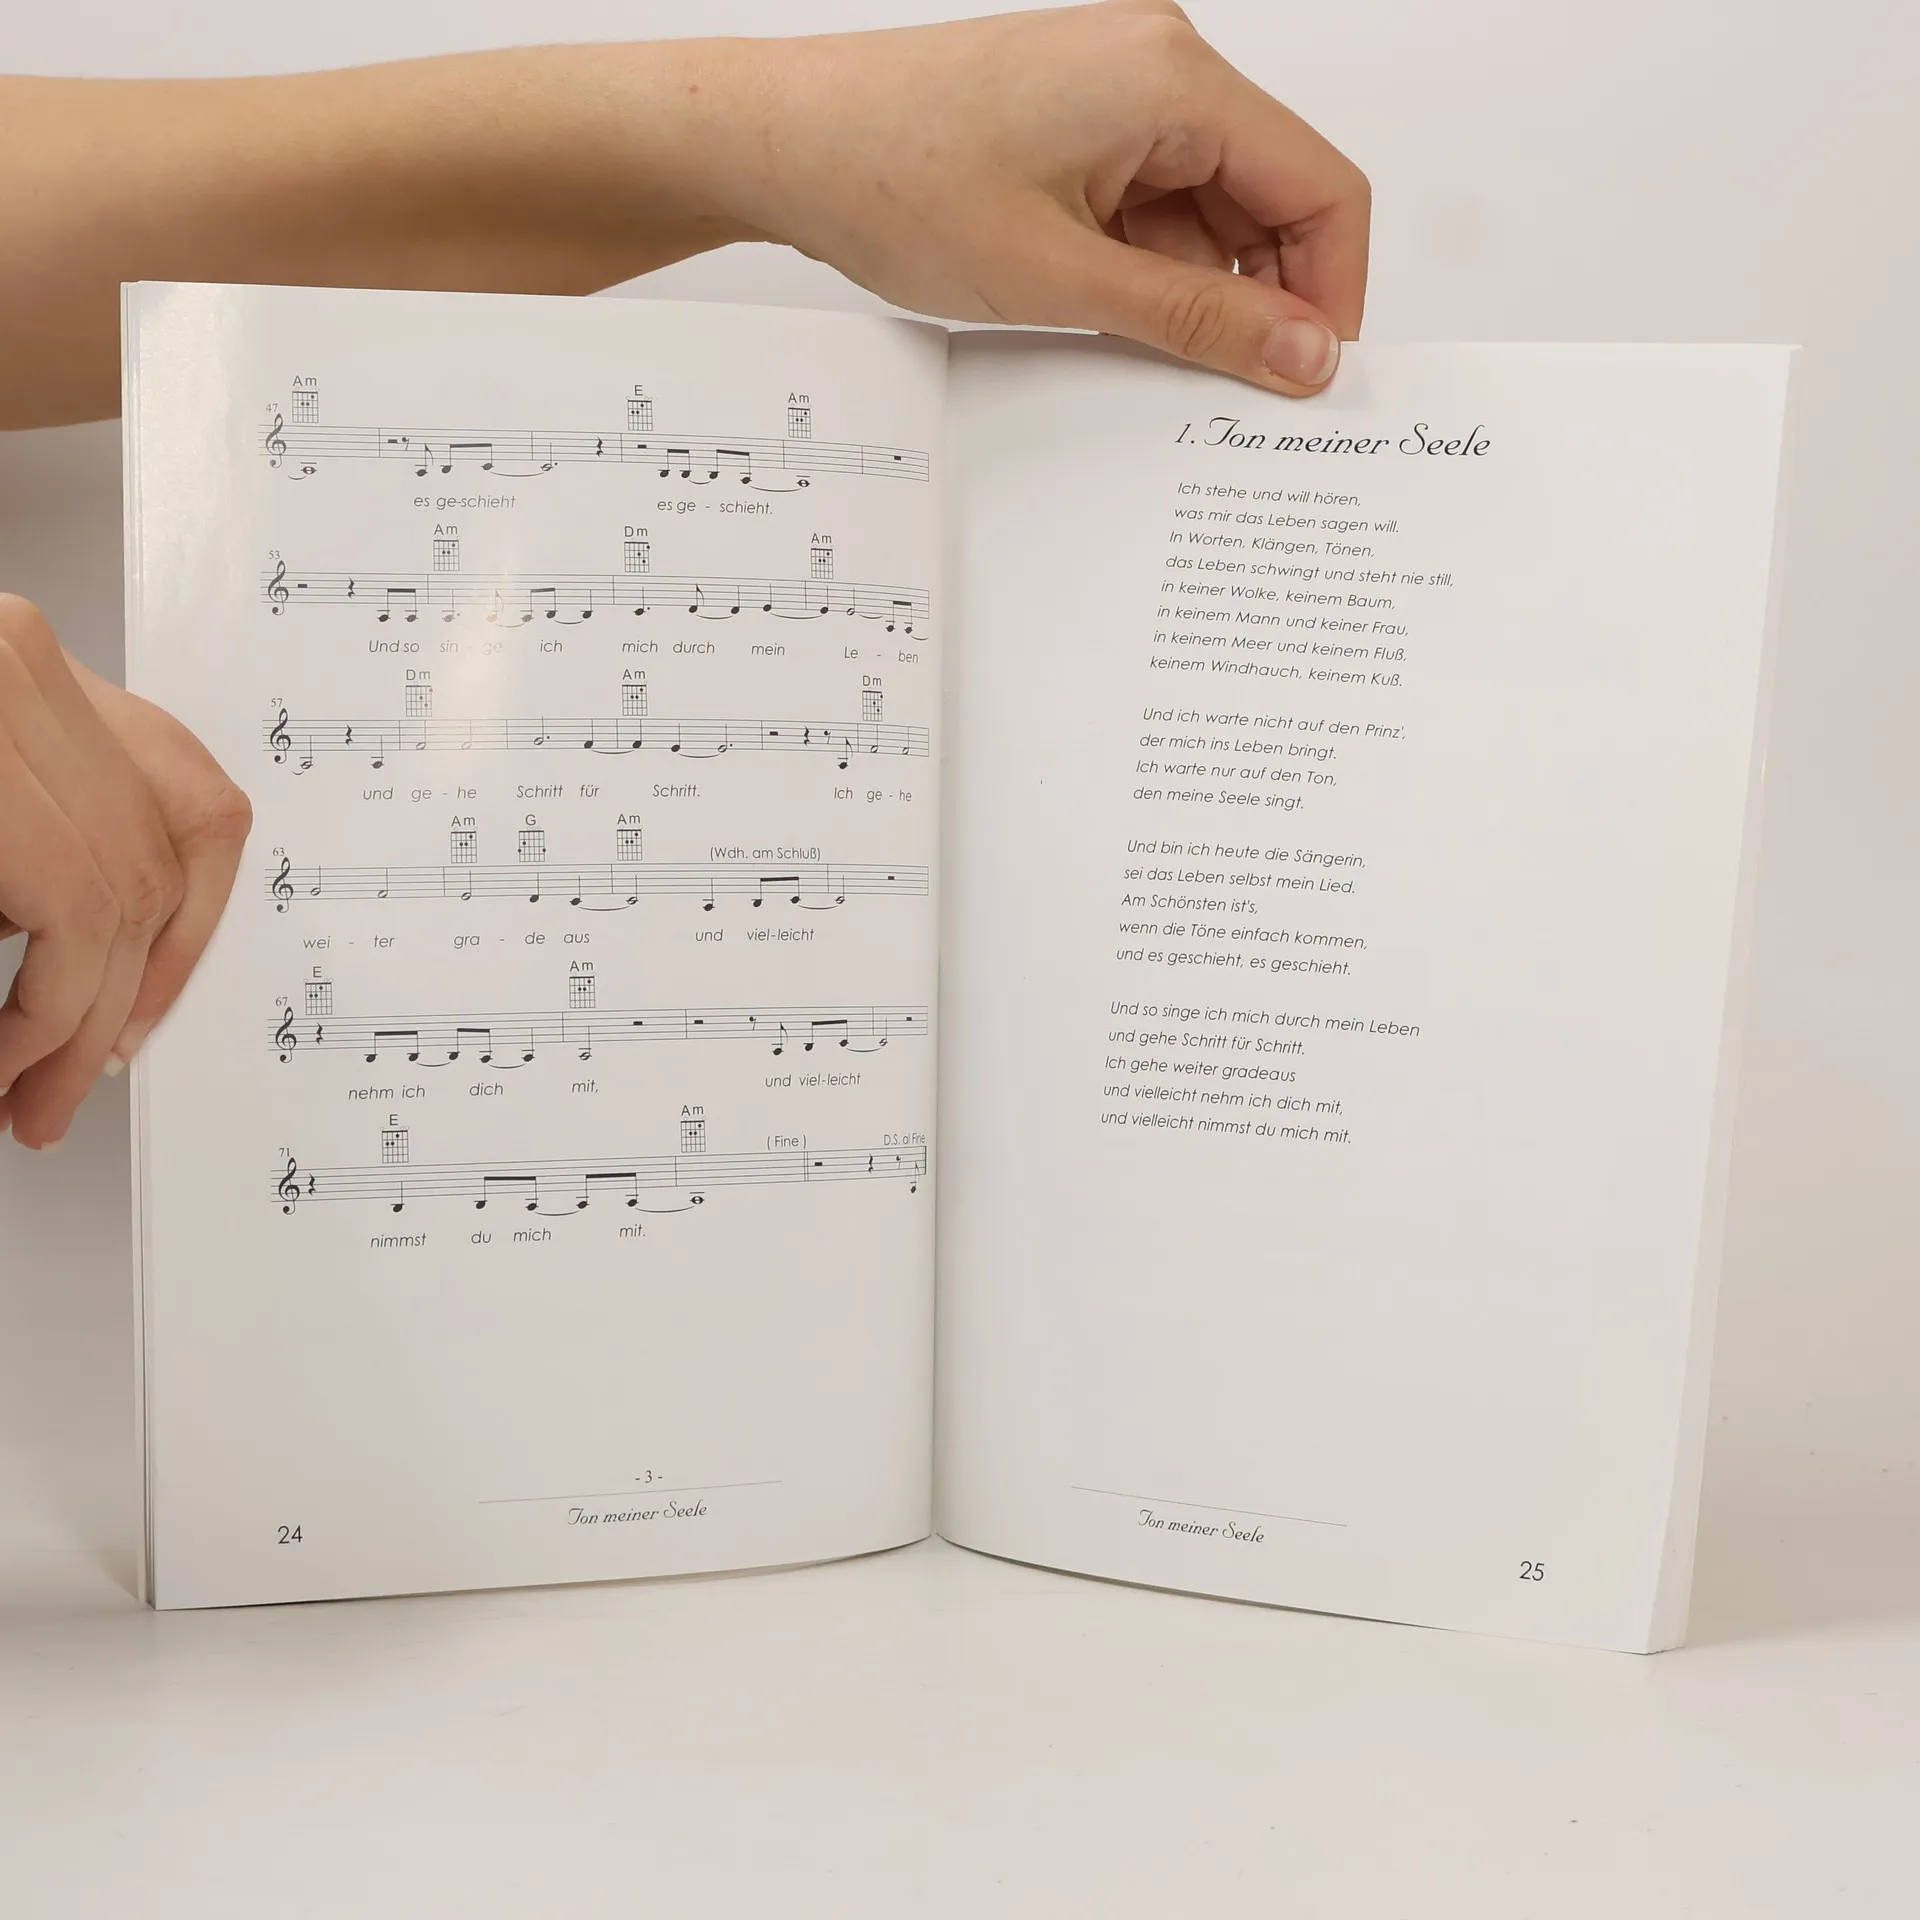 Am E Am
47
es ge-schieht es ge - schieht.
Am Dm Am
53
Und so sin - ge ich mich durch mein Le - ben
Dm Am Dm
57
und ge - he Schritt für Schritt. Ich ge - he
Am G Am
(Wdh. am Schluß)
63
wei - ter gra - de aus und viel-leicht
E Am
67
nehm ich dich mit, und viel-leicht
E Am
(Fine) D.S. al Fine
71
nimmst du mich mit.
- 3 -
Ton meiner Seele
24
1. Ton meiner Seele
Ich stehe und will hören,
was mir das Leben sagen will.
In Worten, Klängen, Tönen,
das Leben schwingt und steht nie still,
in keiner Wolke, keinem Baum,
in keinem Mann und keiner Frau,
in keinem Meer und keinem Fluß,
keinem Windhauch, keinem Kuß.
Und ich warte nicht auf den Prinz',
der mich ins Leben bringt.
Ich warte nur auf den Ton,
den meine Seele singt.
Und bin ich heute die Sängerin,
sei das Leben selbst mein Lied.
Am Schönsten ist's,
wenn die Töne einfach kommen,
und es geschieht, es geschieht.
Und so singe ich mich durch mein Leben
und gehe Schritt für Schritt.
Ich gehe weiter gradeaus
und vielleicht nehm ich dich mit,
und vielleicht nimmst du mich mit.
Ton meiner Seele
25